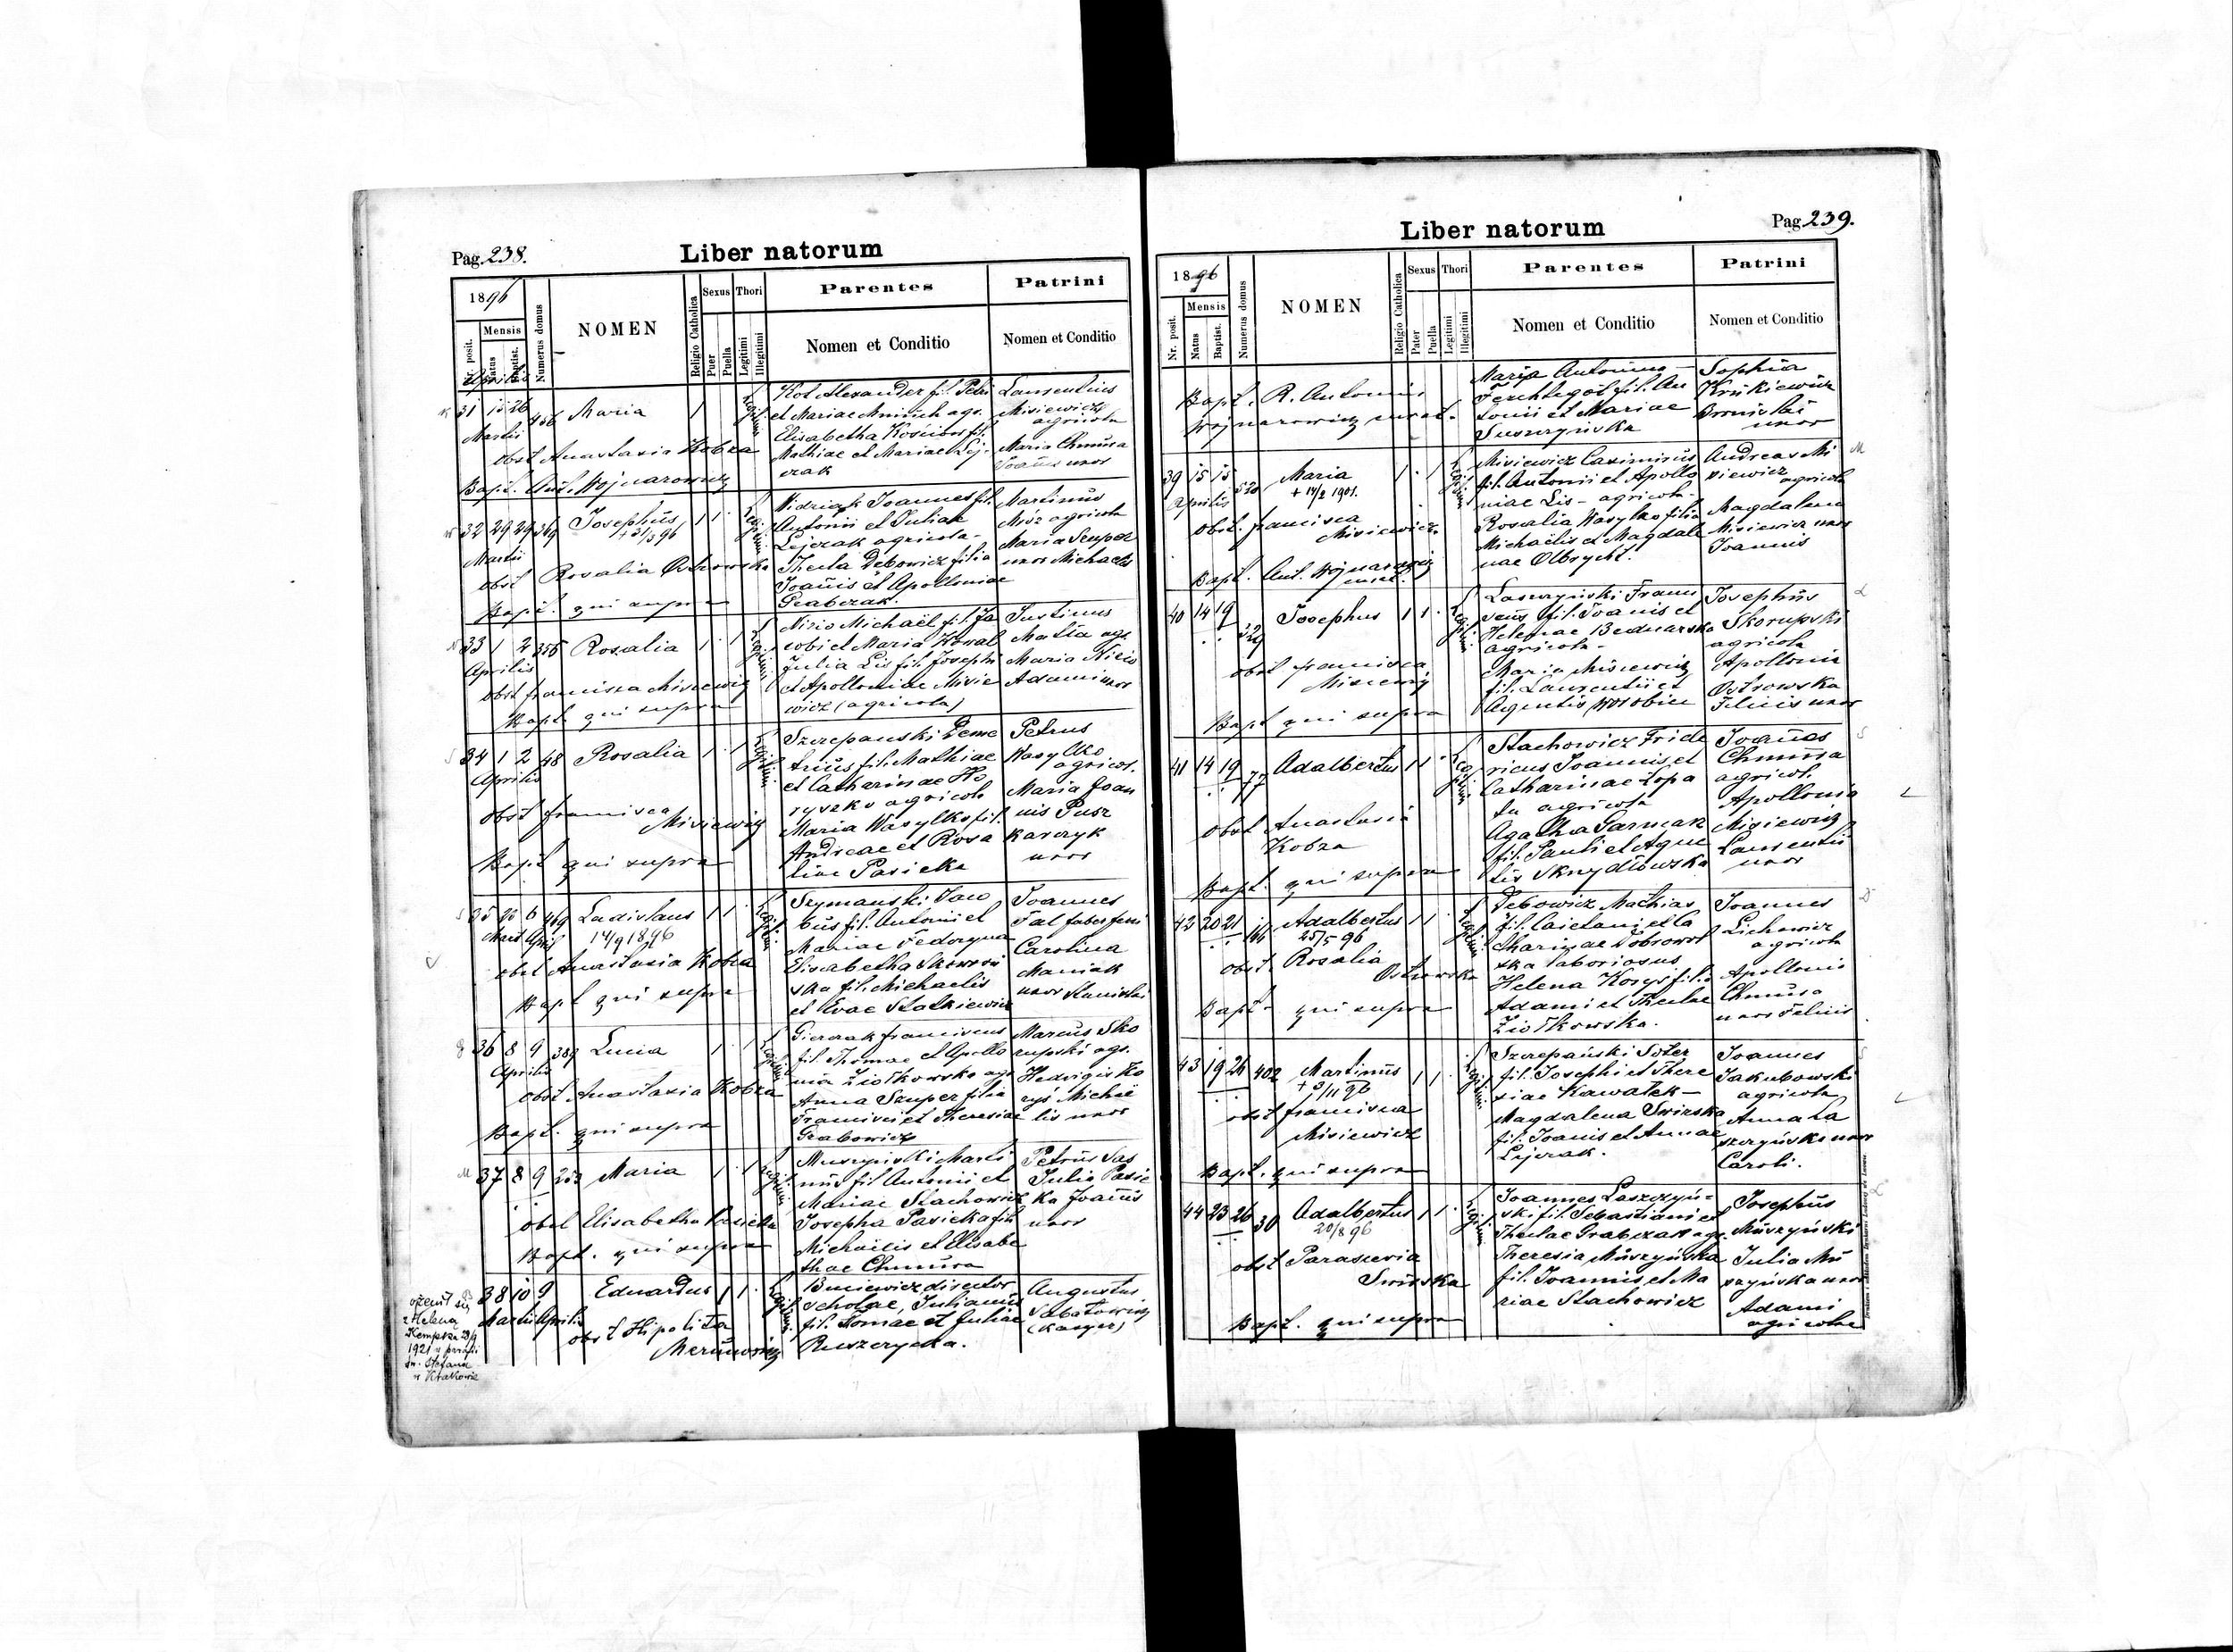 Pag. 238.
Liber natorum
1896
Nr. posit.
Mensis
Natus
Baptist.
Numerus domus
NOMEN
Religio Catholica
Sexus
Puer
Puella
Thori
Legitimi
Illegitimi
Parentes
Nomen et Conditio
Patrini
Nomen et Conditio
Aprilis
31 15 26 456 Maria 1
Martii
obst Anastasia Kobza
Bapt. Ant. Wojnarowicz
Kot Alexander fil. Petri
et Mariae agr.
Elisabetha Kościów fil.
Mathiae et Mariae Lej-
czak
Laurentius
Misiewicz
agricola
Maria Chmura
Joanis uxor
32 29 29 349 Josephus 1 1
+ 31/3 96
Martii
obst Rosalia Ostrowska
Bapt. qui supra
Joannes fil.
Antonii et Juliae
Lejczak agricola -
Thecla Debowicz filia
Joanis et Apolloniae
Grabczak.
Martinus
Mróz agricola
Maria Szuper
uxor Michaelis
33 1 2 356 Rosalia 1 1
Aprilis
obst francisca Misiewicz
Bapt. qui supra
Nizio Michaël fil. Ja
cobi et Maria Kowal
Julia Lis fil. Josephi
et Apolloniae Misie
wicz (agricola)
Justinus
Matia agr.
Maria Nizio
Adami uxor
34 1 2 48 Rosalia 1 1
Aprilis
obst francisca
Misiewicz
Bapt qui supra
Szczepanski Deme
trius fil. Mathiae
et Catharinae Ho
ryszko agricola
Maria Wasylko fil.
Andreae et Rosa
liae Pasieka
Petrus
Wasylko
agricol.
Maria Joan
nis Pusz
karczyk
uxor
35 26 6 469 Ladislaus 1 1
Mart April 14/9 1896
obst Anastasia Kobza
Bapt qui supra
Szymanski Jaco
bus fil. Antoni et
Mariae Fedoryna
Elisabetha Skowroń
ska fil. Michaelis
et Evae Statkiewicz
Joannes
Tal faber ferri
Carolina
Maniak
uxor Stanislai
36 8 9 389 Lucia 1 1
Aprilis
obst Anastasia Kobza
Bapt. qui supra
Gierczak franciscus
fil. Thomae et Apollo
nia Ziołkowska agr.
Anna Szuper filia
Francisci et Theresiae
Grabowicz
Marcus Sko
rupski agr.
Hedvigis Ko
rys Michaë
lis uxor
37 8 9 253 Maria 1 1
obst Elisabetha Pasieka
Bapt. qui supra
Muszyński Marti
nus fil Antonii et
Mariae Stachowicz
Josepha Pasieka fil.
Michaelis et Elisabe
thae Chmura
Petrus Sas
Julia Pasie
ka Joanis
uxor
38 10 9 Eduardus 1 1
Martii Aprilis
obst Hipolita
Merunowicz
director
scholae, Julianus
fil. Tomae et Juliae
Ruszczycka.
Augustus
Sabatowicz
(kasyer)
ożenił się
z Heleną
Kempska 29/9
1921 w parafii
św. Stefana
w Krakowie
Pag. 239.
Liber natorum
1896
Nr. posit.
Mensis
Natus
Baptist.
Numerus domus
NOMEN
Religio Catholica
Sexus
Puer
Puella
Thori
Legitimi
Illegitimi
Parentes
Nomen et Conditio
Patrini
Nomen et Conditio
Bapt. R. Antonius
Wojnarowicz
Maria Antonina -
fil. An
tonii et Mariae
Suszczyńska
Sophia
Krukiewicz
Bronislai
uxor
39 15 15 520 Maria 1 1
+ 14/2 1901.
Aprilis
obst. francisca
Misiewicz
Bapt. Ant. Wojnarowicz
Misiewicz Casimirus
fil. Antonii et Apollo
niae Lis - agricola -
Rosalia Wasylko filia
Michaëlis et Magdale
nae Olbrycht.
Andreas Mi
siewicz
agricola
Magdalena
Misiewicz uxor
Joannis
40 14 19 329 Josephus 1 1
obst francisca
Misiewicz
Bapt qui supra
Laszczyński Franci
scus fil. Joanis et
Helenae Bednarska
agricola -
Maria Misiewicz
fil. Laurentii et
Agnetis Worobiec
Josephus
Skorupski
agricola
Apollonia
Ostrowska
Felicis uxor
41 14 19 77 Adalbertus 1 1
obst Anastasia
Kobza
Bapt. qui supra
Stachowicz Fride
ricus Joannis et
Catharinae Łopa
ta agricola
Agatha Parniak
fil. Pauli et Agne
tis Skrydłowska
Joannes
Chmura
agricol.
Apollonia
Misiewicz
Laurentii
uxor
42 20 21 166 Adalbertus 1 1
25/5 96
obst. Rosalia
Ostrowska
Bapt. qui supra
Debowicz Mathias
fil. Caietani et Ca
tharinae Dobrowol
ska laboriosus
Helena Korys filia
Adami et Theclae
Ziołkowska.
Joannes
Lichowicz
agricola
Apollonia
Chmura
uxor Felicis
43 19 26 402 Martinus 1 1
+ 3/11 96
obst francisca
Misiewicz
Bapt. qui supra
Szczepański Soter
fil. Josephi et There
siae Kawałek -
Magdalena Swirska
fil. Joanis et Annae
Lejczak.
Joannes
Jakubowski
agricola
Anna La
szczyńska uxor
Caroli.
44 23 26 30 Adalbertus 1 1
20/8 96
obst Parascevia
Swirska
Bapt. qui supra
Joannes Laszczyń-
ski fil. Sebastiani et
Theclae Grabczak agr.
Theresia Muszyńska
fil. Joannis et Ma
riae Stachowicz
Josephus
Muszyński
Julia Mu
szyńska uxor
Adami
agricolae